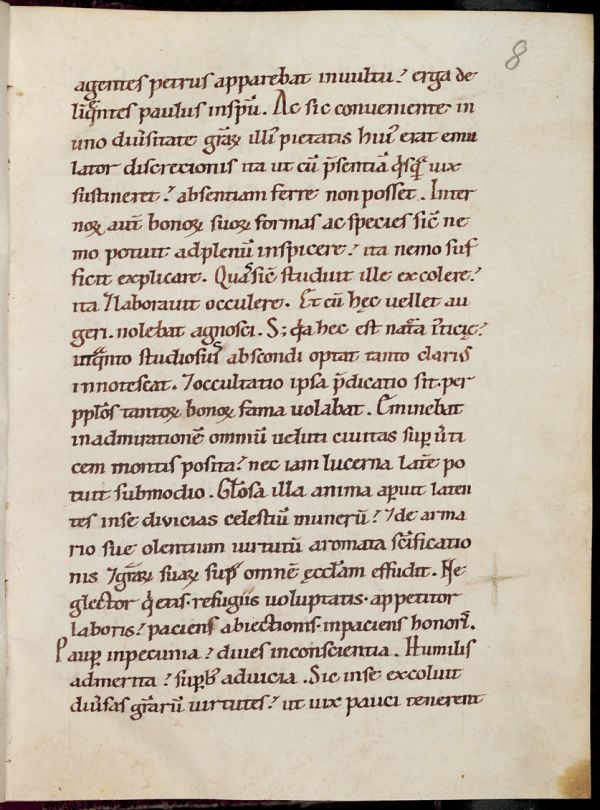 8
agentes petrus apparebat inuultu? erga de
linq̃ntes paulus inspũ. Ac sic conueniente in
uno diũsitate gr̃aꝝ illi᾿ pietatis hui᾿ erat emu
lator discrecionis ita ut cũ p̃sentiã q̃sq̃ uix
sustineret? absentiam ferre non posset. Inter
noꝝ aut̃ bonoꝝ suoꝝ formas ac species sic̃ ne
mo potuit adplenũ inspicere? ita nemo suf
ficit explicare. Quã sic̃ studuit ille excolere?
ita ⁊laborauit occulere. Et cũ hęc uellet au
geri. nolebat agnosci. S; q̃a hec est nat̃a
utq̃nto studiosi᾿ abscondi optat tanto clarius
innotescat. ⁊occultatio ipsa p̃dicatio sit. per
pp̃los tantoꝝ bonoꝝ fama uolabat. Eminebat
inadmirationẽ omniũ ueluti ciuitas sup ũti
cem montis posita? nec iam lucerna lat̃e po
tuit submodio. Gl̃osa illa anima apuit laten
tes inse diuicias celestiũ munerũ? ⁊de arma
rio sue olentium uirtutũ aromata sc̃ificatio
nis ⁊gr̃aꝝ suaꝝ sup omnẽ ęccl̃am effudit. Ne
glector q̃etis. refugus uoluptatis. appetitor
laboris? paciens abiectionis. inpaciens honoris.
Paup inpecunia? diues inconscientia. Humilis
admerita? supb᾿ aduicia. Sic inse excoluit
diũsas gr̃arũ uirtutes? ut uix pauci tenerent